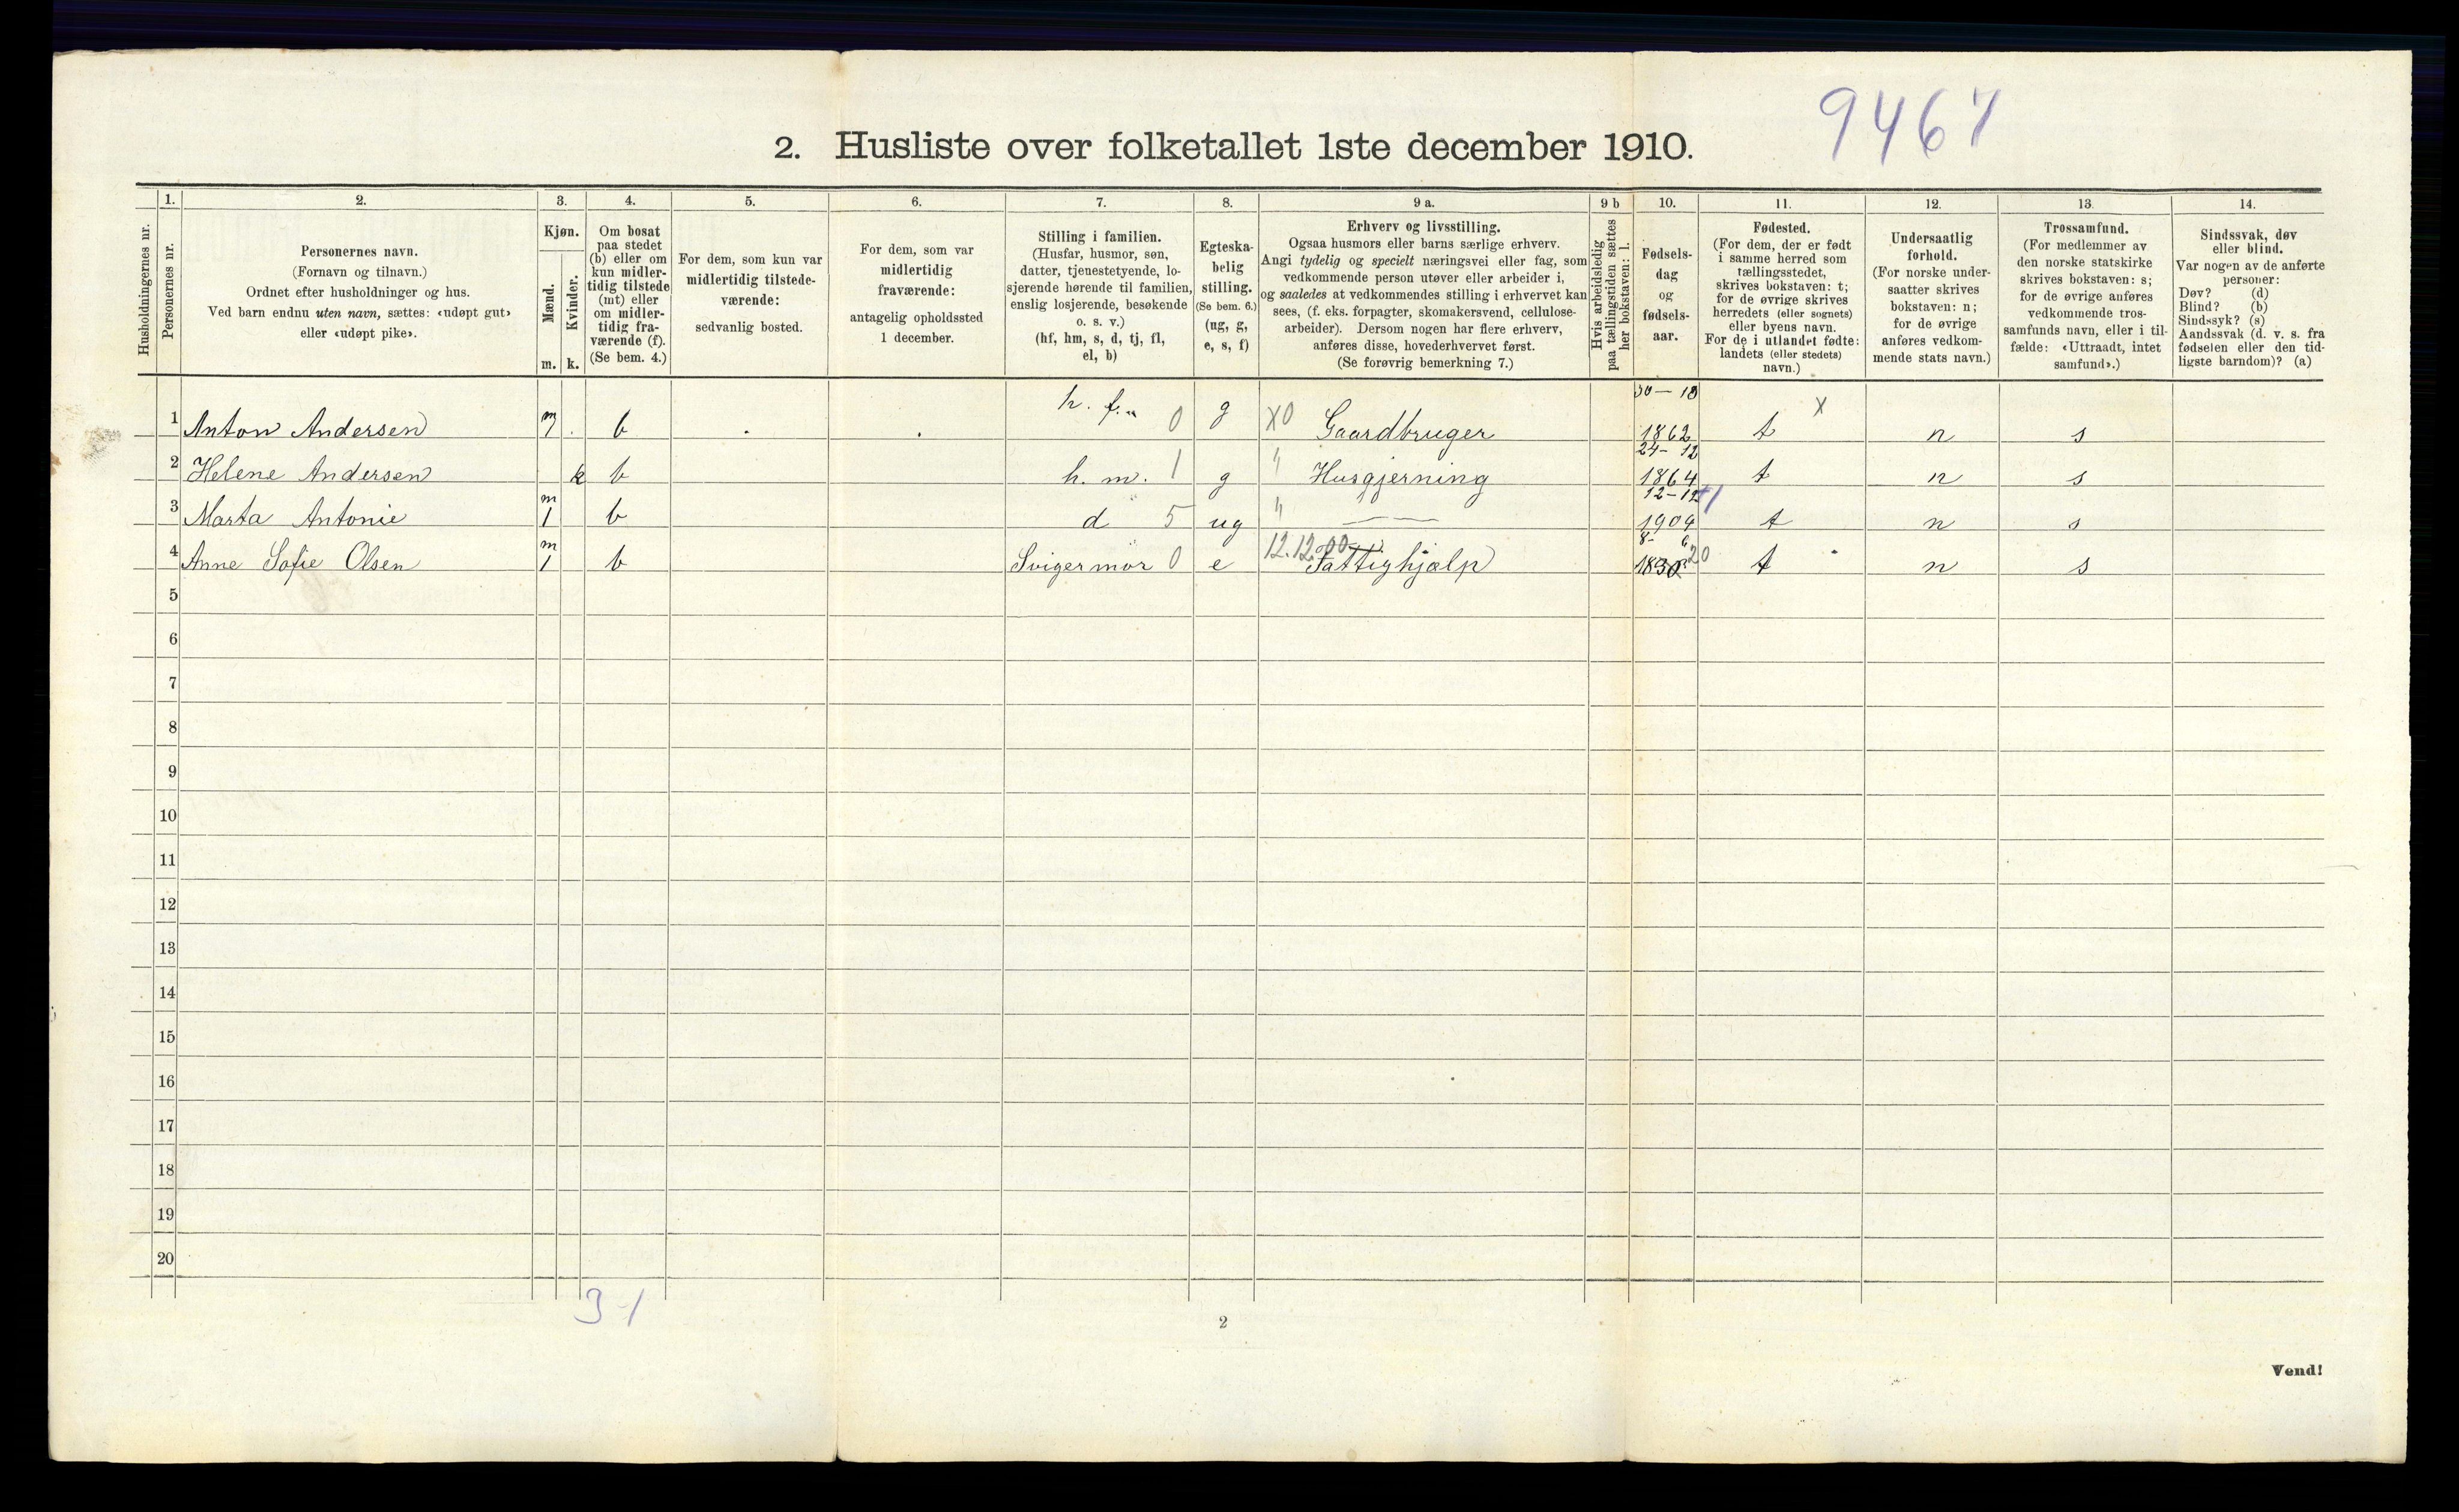 9467
2. Husliste over folketallet 1ste december 1910.
Husholdningernes nr.
1.
Personernes nr.
2.
Personernes navn.
(Fornavn og tilnavn.)
Ordnet efter husholdninger og hus.
Ved barn endnu uten navn, sættes: «udøpt gut»
eller «udøpt pike».
3.
Kjøn.
Mænd.
m.
Kvinder.
k.
4.
Om bosat
paa stedet
(b) eller om
kun midler-
tidig tilstede
(mt) eller
om midler-
tidig fra-
værende (f).
(Se bem. 4.)
5.
For dem, som kun var
midlertidig tilstede-
værende:
sedvanlig bosted.
6.
For dem, som var
midlertidig
fraværende:
antagelig opholdssted
1 december.
7.
Stilling i familien.
(Husfar, husmor, søn,
datter, tjenestetyende, lo-
sjerende hørende til familien,
enslig losjerende, besøkende
o. s. v.)
(hf, hm, s, d, tj, fl,
el, b)
8.
Egteska-
belig
stilling.
(Se bem. 6.)
(ug, g,
e, s, f)
9 a.
Erhverv og livsstilling.
Ogsaa husmors eller barns særlige erhverv.
Angi tydelig og specielt næringsvei eller fag, som
vedkommende person utøver eller arbeider i,
og saaledes at vedkommendes stilling i erhvervet kan
sees, (f. eks. forpagter, skomakersvend, cellulose-
arbeider). Dersom nogen har flere erhverv,
anføres disse, hovederhvervet først.
(Se forøvrig bemerkning 7.)
9 b
Hvis arbeidsledig
paa tællingstiden sættes
her bokstaven: l.
10.
Fødsels-
dag
og
fødsels-
aar.
11.
Fødested.
(For dem, der er født
i samme herred som
tællingsstedet,
skrives bokstaven: t;
for de øvrige skrives
herredets (eller sognets)
eller byens navn.
For de i utlandet fødte:
landets (eller stedets)
navn.)
12.
Undersaatlig
forhold.
(For norske under-
saatter skrives
bokstaven: n;
for de øvrige
anføres vedkom-
mende stats navn.)
13.
Trossamfund.
(For medlemmer av
den norske statskirke
skrives bokstaven: s;
for de øvrige anføres
vedkommende tros-
samfunds navn, eller i til-
fælde: «Uttraadt, intet
samfund».)
14.
Sindssvak, døv
eller blind.
Var nogen av de anførte
personer:
Døv? (d)
Blind? (b)
Sindssyk? (s)
Aandssvak (d. v. s. fra
fødselen eller den tid-
ligste barndom)? (a)
1 Anton Andersen m b h. f. 0 g X0 Gaardbruger 1862 t X n s
2 Helene Andersen k b h. m. 1 g " Husgjerning 24-12 1864 t n s
3 Marta Antonie m 1 b d 5 ug " — 12-12 1904 t n s
4 Anne Sofie Olsen m 1 b Svigermor 0 e 12.12.00 Fattighjælp t n s
5
6
7
8
9
10
11
12
13
14
15
16
17
18
19
20
3-1
2
Vend!